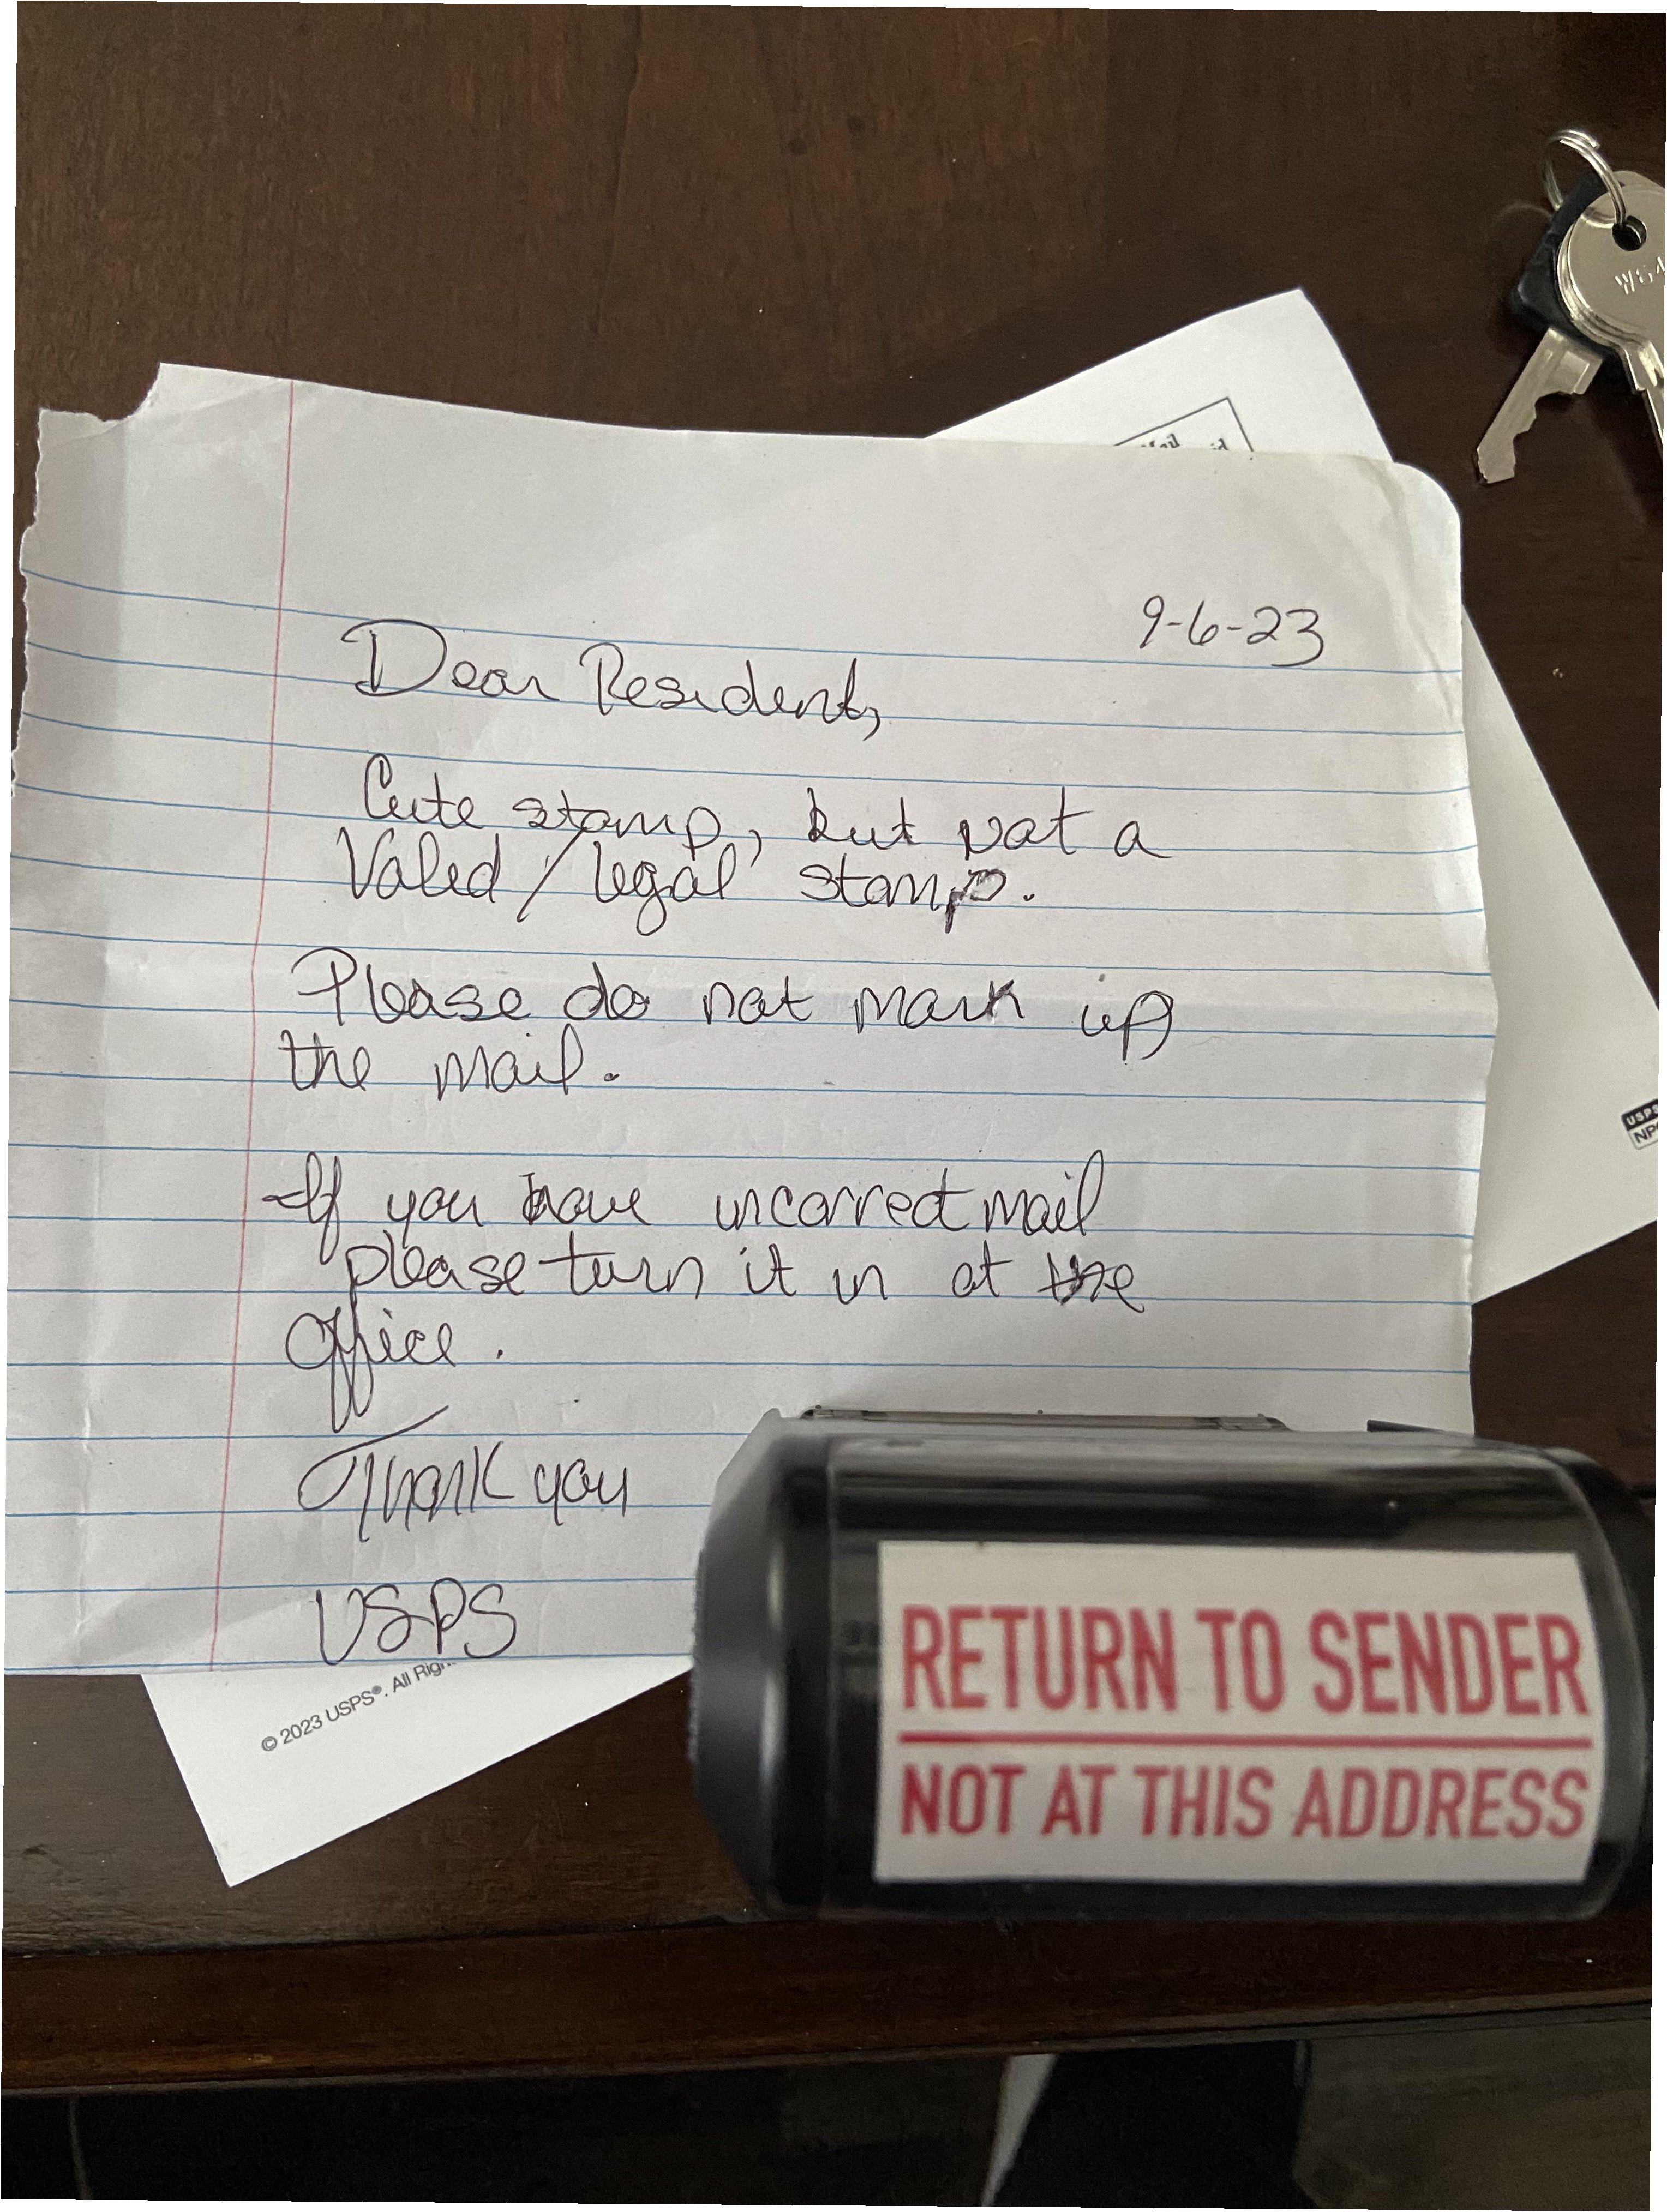 9-6-23
Dear Resident,
Cute stamp, but not a
Valed/legal stamp.
Please do not mark up
the mail.
If you have incorrect mail
please turn it in at the
office.
Thank you
USPS
© 2023 USPS®. All Righ
USPS
RETURN TO SENDER
NOT AT THIS ADDRESS